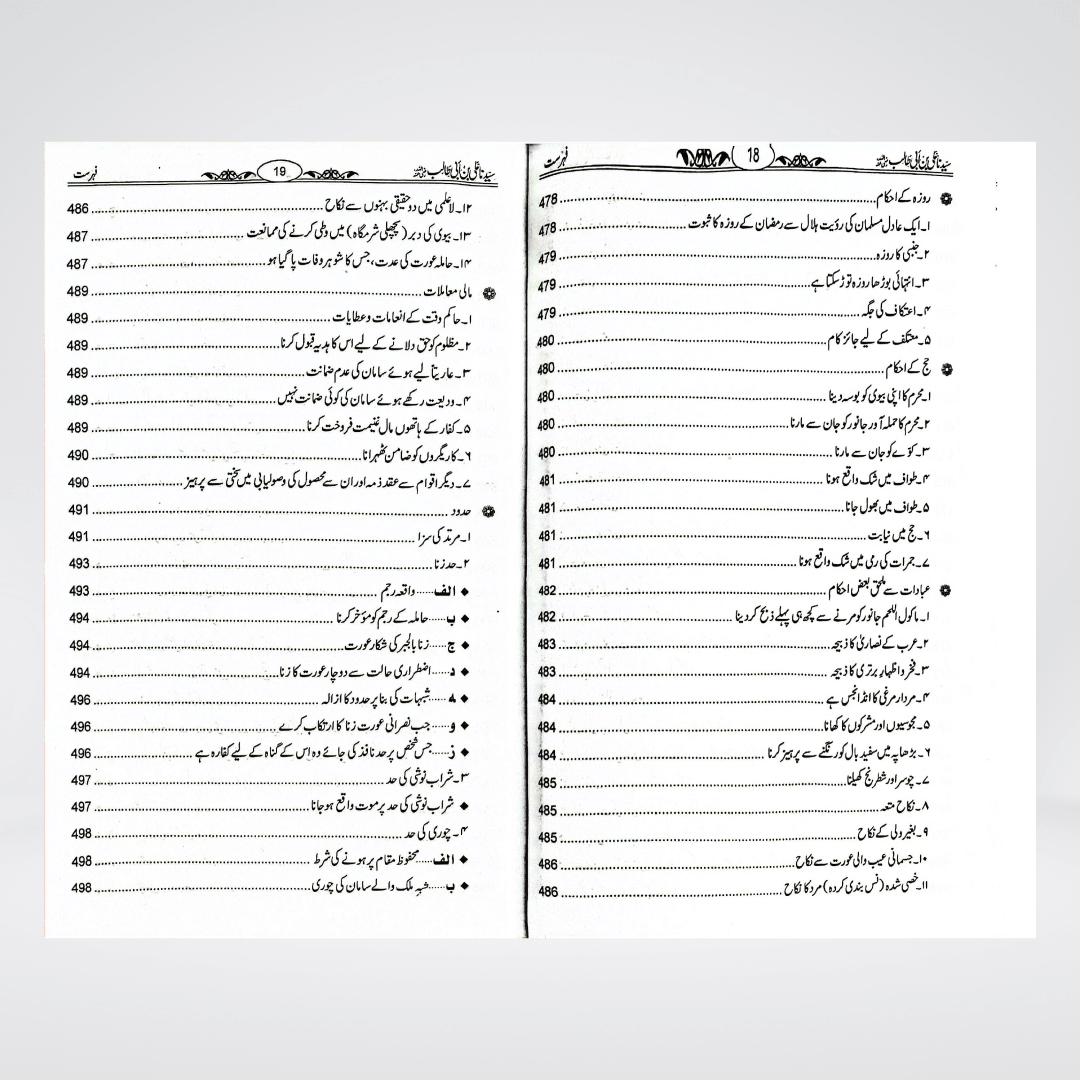 سیدنا علی بن ابی طالب رضی اللہ عنہ 18 فہرست
روزہ کے احکام 478
۱۔ ایک عادل مسلمان کی رؤیت ہلال سے رمضان کے روزہ کا ثبوت 478
۲۔ جنبی کا روزہ 479
۳۔ انتہائی بوڑھا روزہ توڑ سکتا ہے 479
۴۔ اعتکاف کی جگہ 479
۵۔ معتکف کے لیے جائز کام 480
حج کے احکام 480
۱۔ محرم کا اپنی بیوی کو بوسہ دینا 480
۲۔ محرم کا حملہ آور جانور کو جان سے مارنا 480
۳۔ کوّے کو جان سے مارنا 480
۴۔ طواف میں شک واقع ہونا 481
۵۔ طواف میں بھول جانا 481
۶۔ حج میں نیابت 481
۷۔ جمرات کی رمی میں شک واقع ہونا 481
عبادات سے ملحق بعض احکام 482
۱۔ ماکول اللحم جانور کو مرنے سے کچھ ہی پہلے ذبح کردینا 482
۲۔ عرب کے نصاریٰ کا ذبیحہ 483
۳۔ فخر و اظہارِ برتری کا ذبیحہ 483
۴۔ مردار مرغی کا انڈا نجس ہے 484
۵۔ مجوسیوں اور مشرکوں کا کھانا 484
۶۔ بڑھاپہ میں سفید بال کو رنگنے سے پرہیز کرنا 484
۷۔ چوسر اور شطرنج کھیلنا 485
۸۔ نکاح متعہ 485
۹۔ بغیر ولی کے نکاح 485
۱۰۔ جسمانی عیب والی عورت سے نکاح 486
۱۱۔ خصی شدہ (نس بندی کردہ) مرد کا نکاح 486
سیدنا علی بن ابی طالب رضی اللہ عنہ 19 فہرست
۱۲۔ لاعلمی میں دو حقیقی بہنوں سے نکاح 486
۱۳۔ بیوی کی دبر (پچھلی شرمگاہ) میں وطی کرنے کی ممانعت 487
۱۴۔ حاملہ عورت کی عدت، جس کا شوہر وفات پا گیا ہو 487
مالی معاملات 489
۱۔ حاکم وقت کے انعامات و عطایات 489
۲۔ مظلوم کو حق دلانے کے لیے اس کا ہدیہ قبول کرنا 489
۳۔ عاریتاً لیے ہوئے سامان کی عدم ضمانت 489
۴۔ ودیعت رکھے ہوئے سامان کی کوئی ضمانت نہیں 489
۵۔ کفار کے ہاتھوں مال غنیمت فروخت کرنا 489
۶۔ کاریگروں کو ضامن ٹھہرانا 490
۷۔ دیگر اقوام سے عقد ذمہ اور ان سے محصول کی وصولیابی میں سختی سے پرہیز 490
حدود 491
۱۔ مرتد کی سزا 491
۲۔ حد زنا 493
الف ..... واقعہ رجم 493
ب ..... حاملہ کے رجم کو مؤخر کرنا 494
ج ..... زنا بالجبر کی شکار عورت 494
د ..... اضطراری حالت سے دوچار عورت کا زنا 494
ہ ..... شبہات کی بنا پر حدود کا ازالہ 496
و ..... جب نصرانی عورت زنا کا ارتکاب کرے 496
ز ..... جس شخص پر حد نافذ کی جائے وہ اس کے گناہ کے لیے کفارہ ہے 496
۳۔ شراب نوشی کی حد 497
شراب نوشی کی حد پر موت واقع ہوجانا 497
۴۔ چوری کی حد 498
الف ..... محفوظ مقام پر ہونے کی شرط 498
ب ..... شبہِ ملک والے سامان کی چوری 498